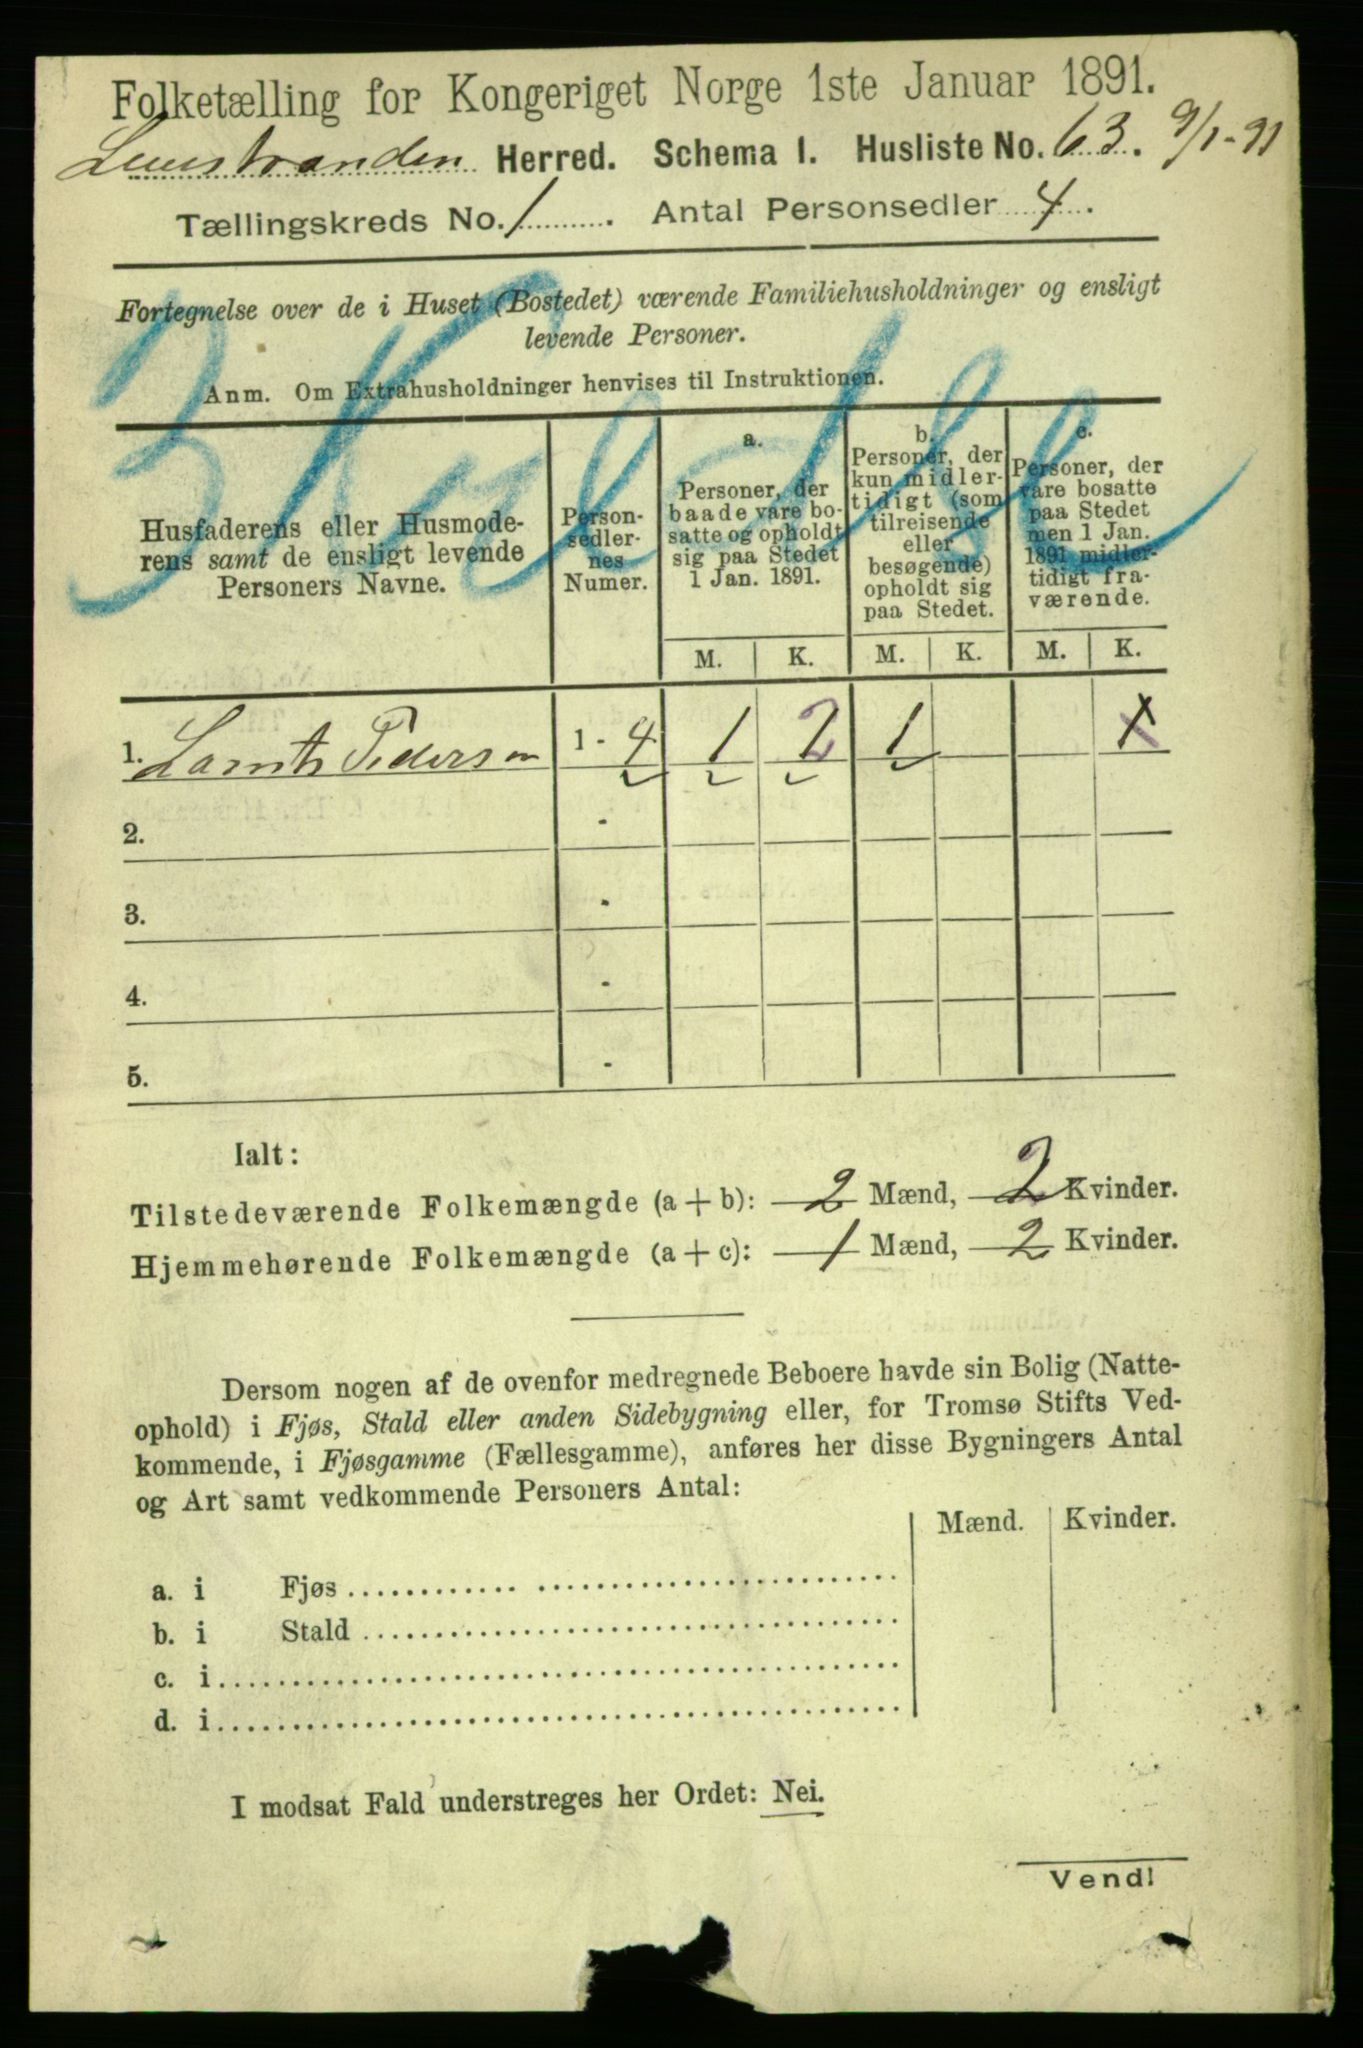 Folketælling for Kongeriget Norge 1ste Januar 1891.
Leinstranden Herred. Schema 1. Husliste No. 63. 9/1-91
Tællingskreds No. 1. Antal Personsedler 4.
Fortegnelse over de i Huset (Bostedet) værende Familiehusholdninger og ensligt
levende Personer.
Anm. Om Extrahusholdninger henvises til Instruktionen.
Husfaderens eller Husmode-
rens samt de ensligt levende
Personers Navne.
Person-
sedler-
nes
Numer.
a.
Personer, der
baade vare bo-
satte og opholdt
sig paa Stedet
1 Jan. 1891.
b.
Personer, der
kun midler-
tidigt (som
tilreisende
eller
besøgende)
opholdt sig
paa Stedet.
c.
Personer, der
vare bosatte
paa Stedet
men 1 Jan.
1891 midler-
tidigt fra-
værende.
M. K. M. K. M. K.
1. Pedersen 1 - 4 1 2 1
2. -
3. -
4. -
5. -
Ialt:
Tilstedeværende Folkemængde (a + b): 2 Mænd, 2 Kvinder.
Hjemmehørende Folkemængde (a + c): 1 Mænd, 2 Kvinder.
Dersom nogen af de ovenfor medregnede Beboere havde sin Bolig (Natte-
ophold) i Fjøs, Stald eller anden Sidebygning eller, for Tromsø Stifts Ved-
kommende, i Fjøsgamme (Fællesgamme), anføres her disse Bygningers Antal
og Art samt vedkommende Personers Antal:
Mænd. Kvinder.
a. i Fjøs
b. i Stald
c. i
d. i
I modsat Fald understreges her Ordet: Nei.
Vend!